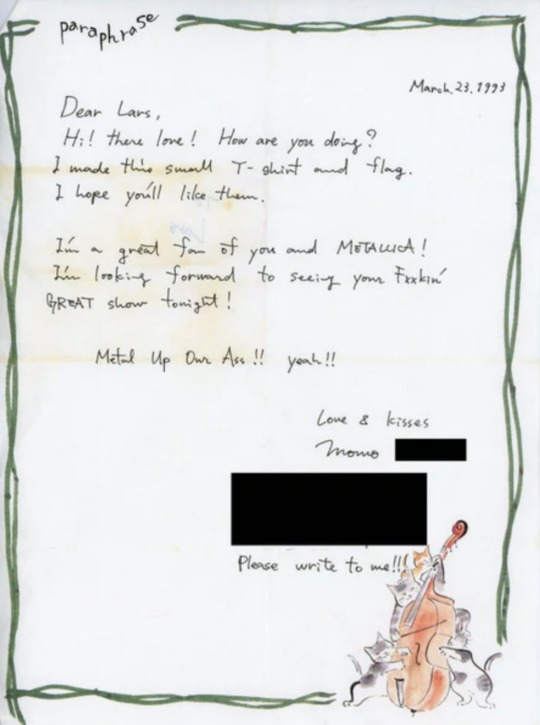 paraphrase
March.23.1993
Dear Lars,
Hi! there love! How are you doing?
I made this small T-shirt and flag.
I hope you'll like them.
I'm a great fan of you and METALLICA!
I'm looking forward to seeing your Fxxkin'
GREAT show tonight!
Metal Up Our Ass!! yeah!!
Love & kisses
Momo
Please write to me!!!